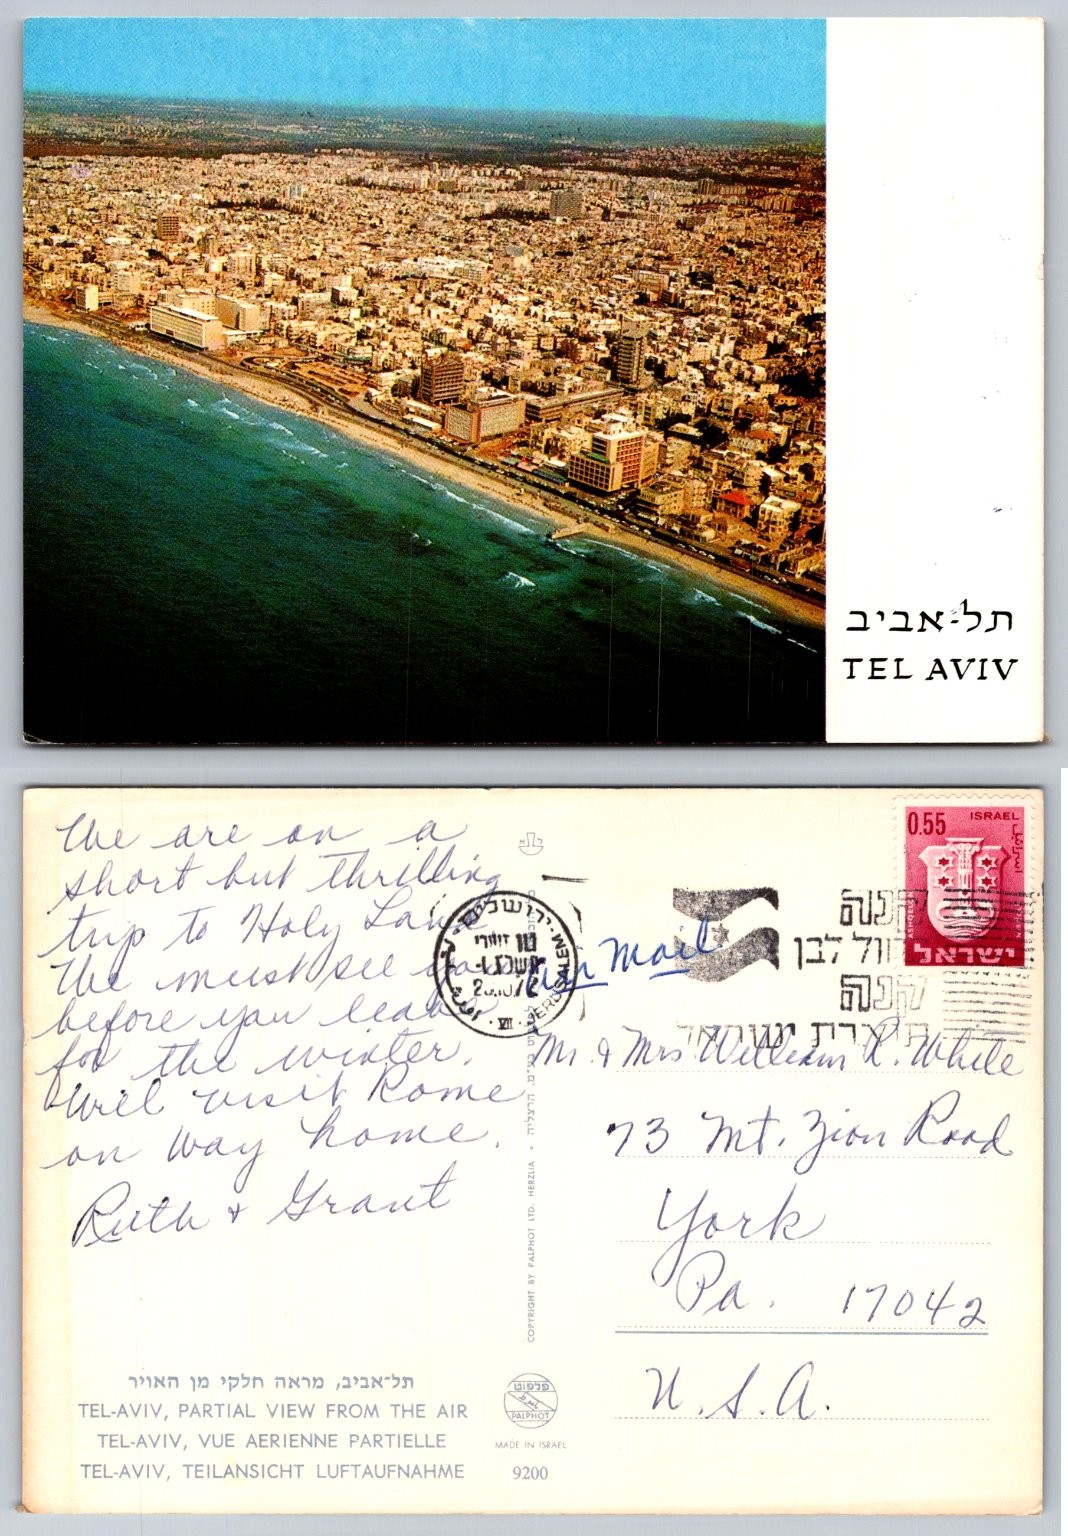 תל-אביב
TEL AVIV
We are on a
short but thrilling
trip to Holy Land
We must see you
before you leave
for the winter.
Will visit Rome
on way home.
Ruth & Grant
תל-אביב, מראה חלקי מן האויר
TEL-AVIV, PARTIAL VIEW FROM THE AIR
TEL-AVIV, VUE AERIENNE PARTIELLE
TEL-AVIV, TEILANSICHT LUFTAUFNAHME
COPYRIGHT BY PALPHOT LTD. HERZLIA
פלפוט
PALPHOT
MADE IN ISRAEL
9200
0.55 ISRAEL
ישראל
ירושלים
JERUSALEM
VII
קפה
וול לבן
קפה
תוצרת ישראל
Air Mail
Mr. & Mrs William R. White
73 Mt. Zion Road
York
Pa. 17042
U.S.A.